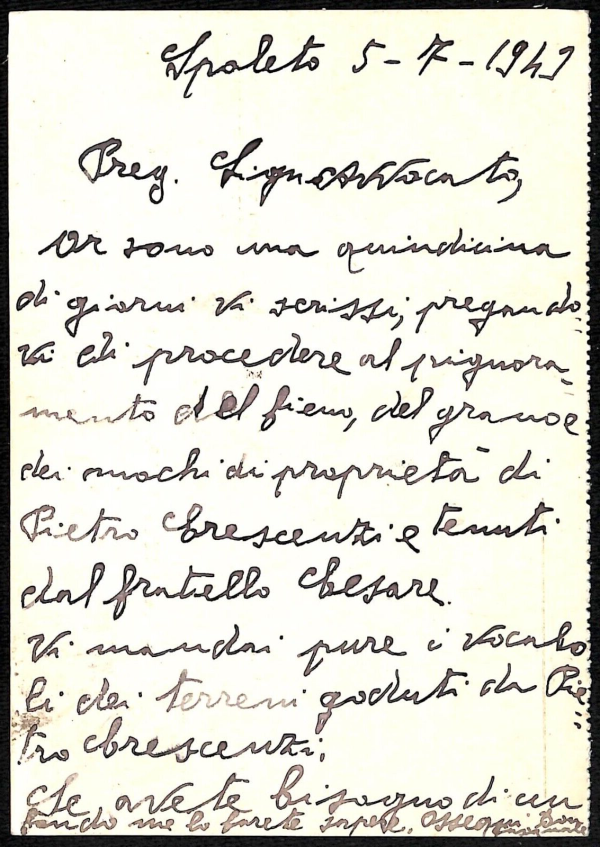 Spoleto 5-7-1949
Preg. Signor Avvocato,
Or sono una quindicina
di giorni vi scrissi, pregando
vi di procedere al pignora-
mento del fieno, del grano e
dei mochi di proprietà di
Pietro Crescenzi e tenuti
dal fratello Cesare.
Vi mandai pure i vocabo
li dei terreni goduti da Pie=
tro Crescenzi.
Se avete bisogno di un
fondo me lo farete sapere. Ossequi